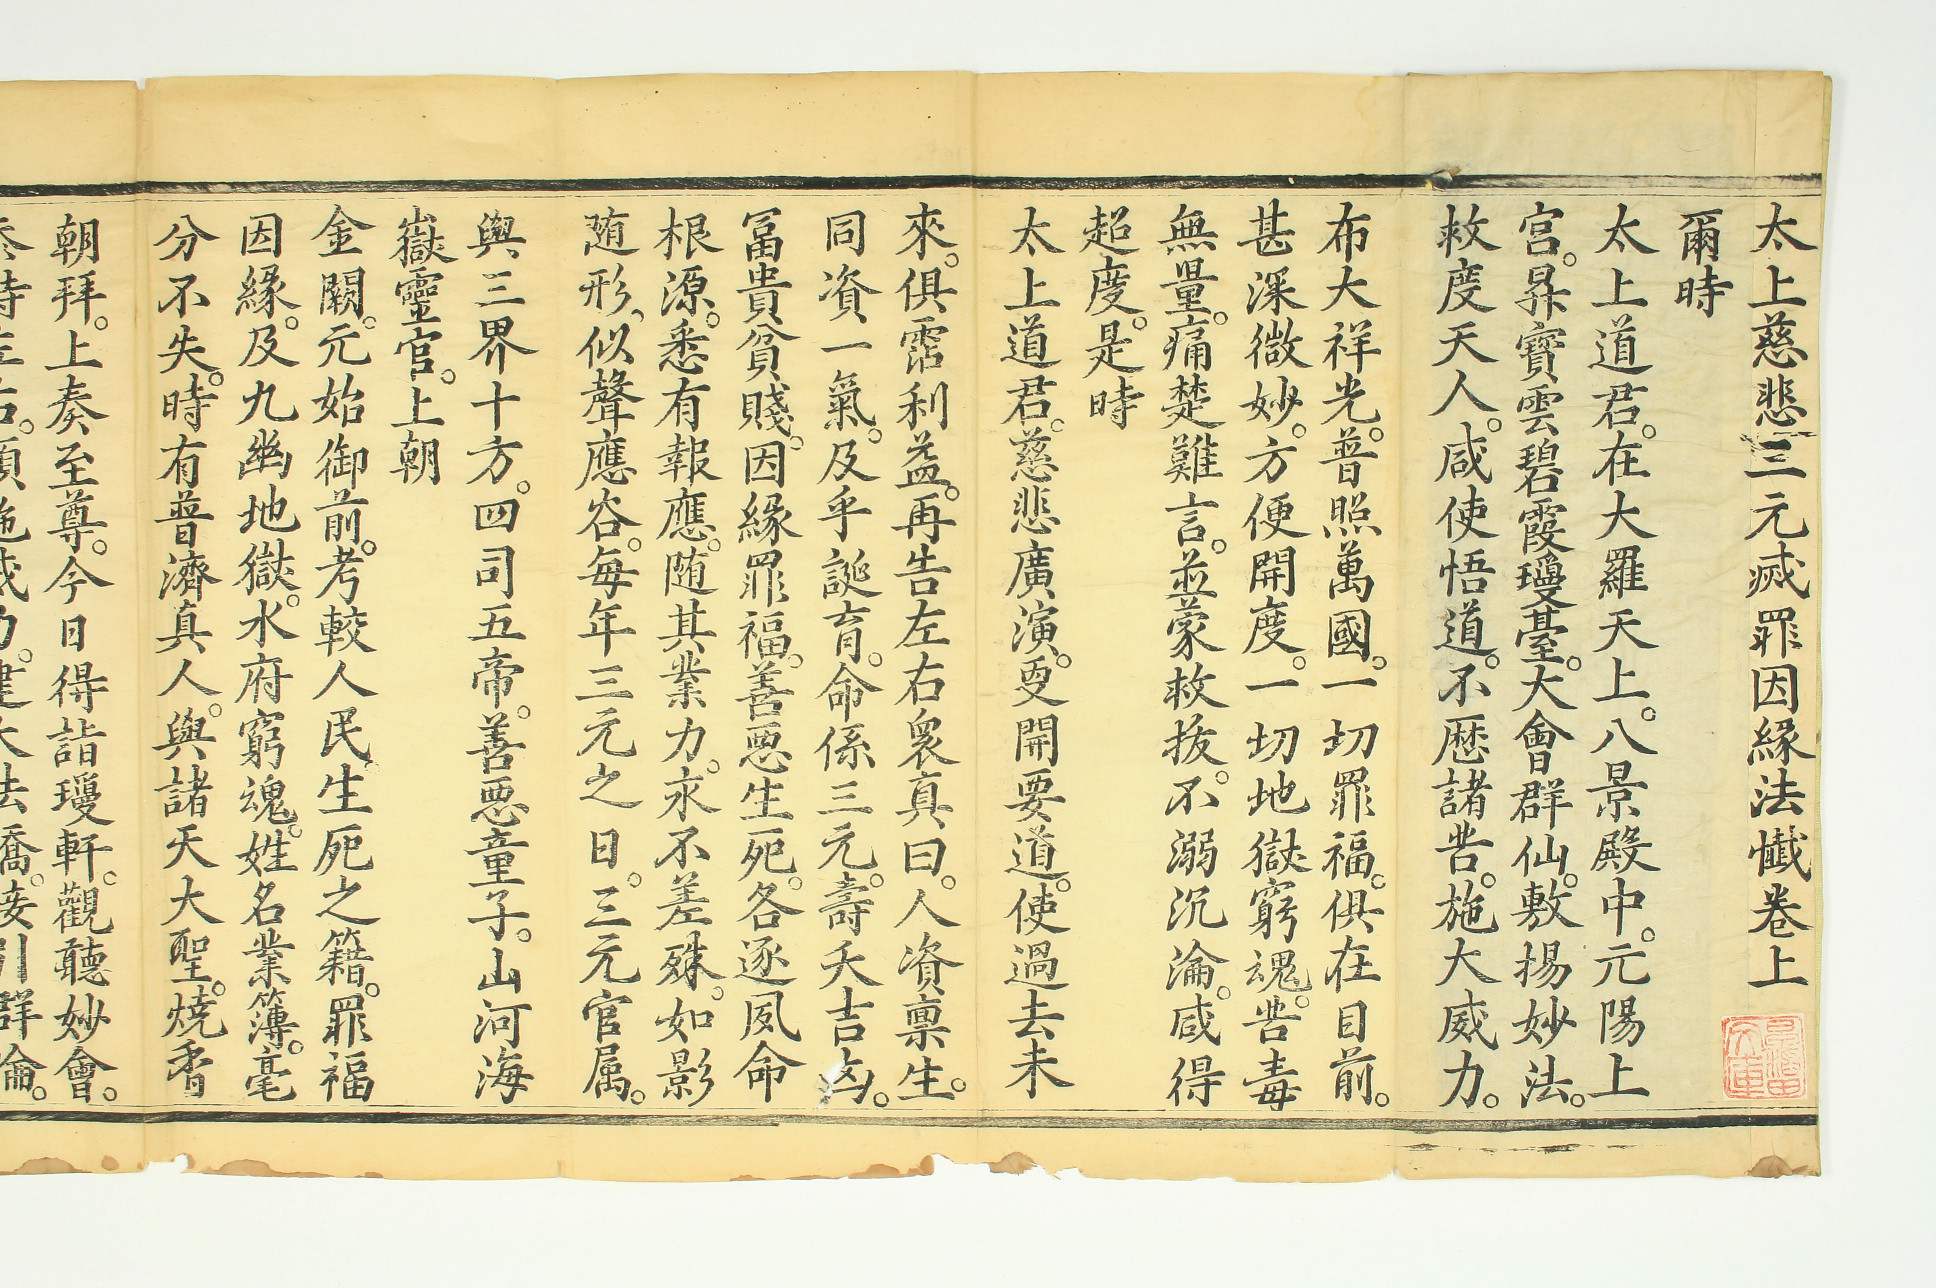 太上慈悲三元灭罪因緣法懺卷上
爾時
太上道君。在大羅天上。八景殿中。元陽上
宮。昇寶雲碧霞瓊臺。大會群仙。敷揚妙法。
救度天人。咸使悟道。不歷諸苦。施大威力。
布大祥光。普照萬國。一切罪福。俱在目前。
甚深微妙。方便開度。一切地獄窮魂。苦毒
無量。痛楚難言。並蒙救拔。不溺沉淪。咸得
超度。是時
太上道君。慈悲廣演。更開要道。使過去未
來。俱霑利益。再告左右衆真曰。人資稟生。
同資一氣。及乎誕育。命係三元。壽夭吉凶。
冨貴貧賤。因緣罪福。善惡生死。各逐夙命
根源。悉有報應。随其業力。永不差殊。如影
随形。似聲應谷。每年三元之日。三元官属。
與三界十方。四司五帝。善惡童子。山河海
嶽靈官。上朝
金闕。元始御前。考較人民生死之籍。罪福
因緣。及九幽地獄。水府窮魂。姓名業簿。毫
分不失。時有普濟真人。與諸天大聖。燒香
朝拜。上奏至尊。今日得詣瓊軒。觀聽妙會。